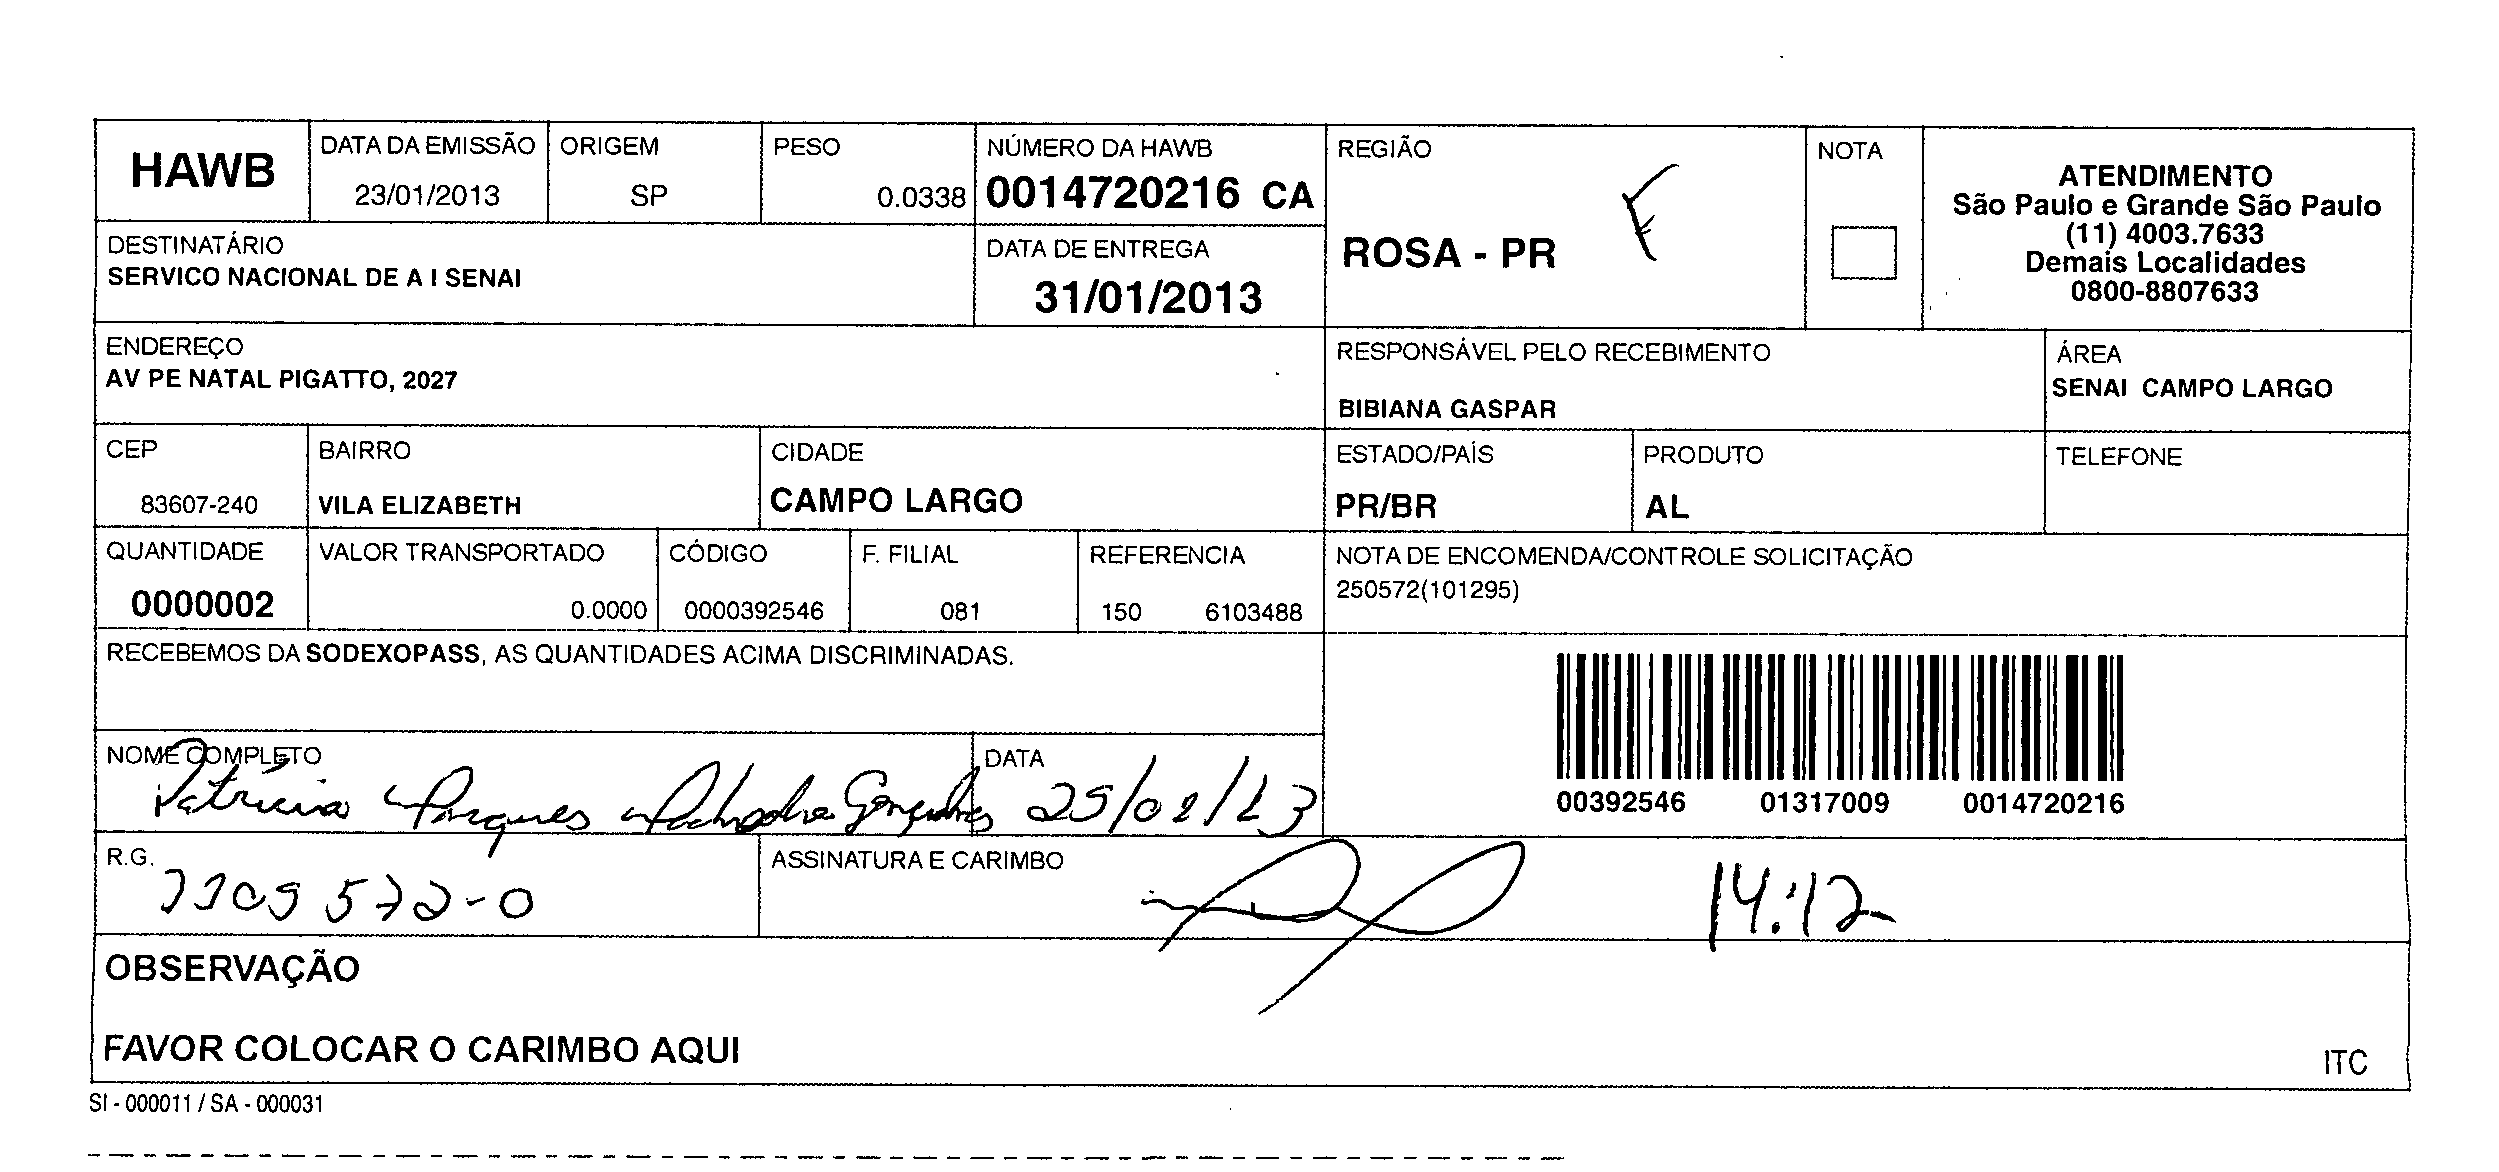 HAWB
DATA DA EMISSÃO
23/01/2013
ORIGEM
SP
PESO
0.0338
NÚMERO DA HAWB
0014720216 CA
REGIÃO
ROSA - PR
NOTA
ATENDIMENTO
São Paulo e Grande São Paulo
(11) 4003.7633
Demais Localidades
0800-8807633
DESTINATÁRIO
SERVICO NACIONAL DE A I SENAI
DATA DE ENTREGA
31/01/2013
ENDEREÇO
AV PE NATAL PIGATTO, 2027
RESPONSÁVEL PELO RECEBIMENTO
BIBIANA GASPAR
ÁREA
SENAI CAMPO LARGO
CEP
83607-240
BAIRRO
VILA ELIZABETH
CIDADE
CAMPO LARGO
ESTADO/PAÍS
PR/BR
PRODUTO
AL
TELEFONE
QUANTIDADE
0000002
VALOR TRANSPORTADO
0.0000
CÓDIGO
0000392546
F. FILIAL
081
REFERENCIA
150 6103488
NOTA DE ENCOMENDA/CONTROLE SOLICITAÇÃO
250572(101295)
RECEBEMOS DA SODEXOPASS, AS QUANTIDADES ACIMA DISCRIMINADAS.
00392546 01317009 0014720216
NOME COMPLETO
Patricia Gonçalves
DATA
25/01/13
R.G.
ASSINATURA E CARIMBO
14:12
OBSERVAÇÃO
FAVOR COLOCAR O CARIMBO AQUI
ITC
SI - 000011 / SA - 000031